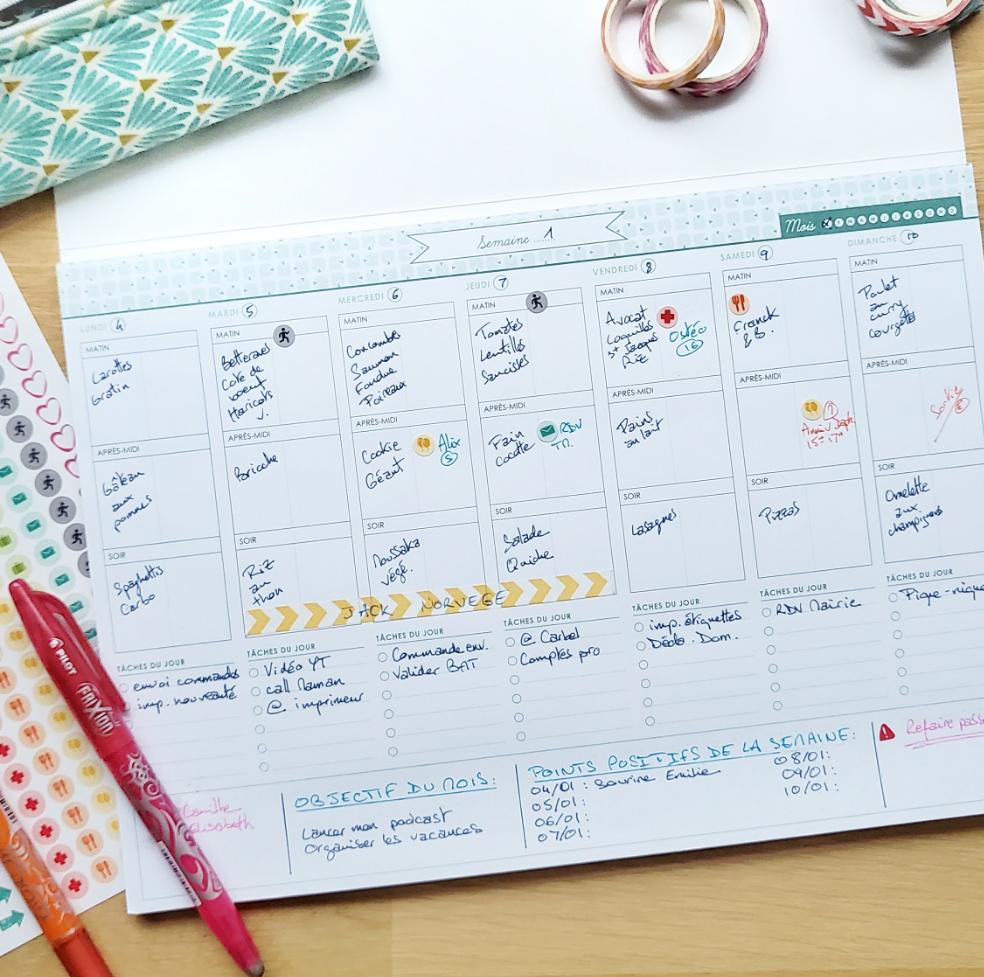 Semaine 1
Mois
LUNDI 4
MATIN
Carottes
Gratin
APRÈS-MIDI
Gâteau
aux
pommes
SOIR
Spaghettis
Carbo
TÂCHES DU JOUR
envoi commandes
imp. nouveauté
MARDI 5
MATIN
Betteraves
Côte de
boeuf
Haricots
v.
APRÈS-MIDI
Brioche
SOIR
Riz
au
thon
JACK NORVEGE
TÂCHES DU JOUR
Vidéo YT
call Maman
@ imprimeur
MERCREDI 6
MATIN
Concombre
Saumon
Fondue
Poireaux
APRÈS-MIDI
Cookie
Géant
Alix
5
SOIR
Moussaka
végé.
TÂCHES DU JOUR
Commande env.
Valider BAT
JEUDI 7
MATIN
Tomates
Lentilles
Saucisses
APRÈS-MIDI
cocotte
RDV
SOIR
Salade
Quiche
TÂCHES DU JOUR
@ Carbel
Comptes pro
VENDREDI 8
MATIN
Avocat
Coquilles
St Jacques
Riz
Ostéo
16
APRÈS-MIDI
Pains
au lait
SOIR
Lasagnes
TÂCHES DU JOUR
imp. étiquettes
Dédo. Dom.
SAMEDI 9
MATIN
Franck
& B.
APRÈS-MIDI
?
Anniv.
15h-17h
SOIR
Pizzas
TÂCHES DU JOUR
RDV Mairie
DIMANCHE 10
MATIN
Poulet
au
curry
courgettes
APRÈS-MIDI
SOIR
Omelette
aux
champignons
TÂCHES DU JOUR
Pique-nique
Camille
Elisabeth
OBJECTIF DU MOIS:
Lancer mon podcast
Organiser les vacances
POINTS POSITIFS DE LA SEMAINE:
04/01 : Sourire Emilie
05/01 :
06/01 :
07/01 :
08/01 :
09/01 :
10/01 :
Refaire pass
PILOT
FRIXION